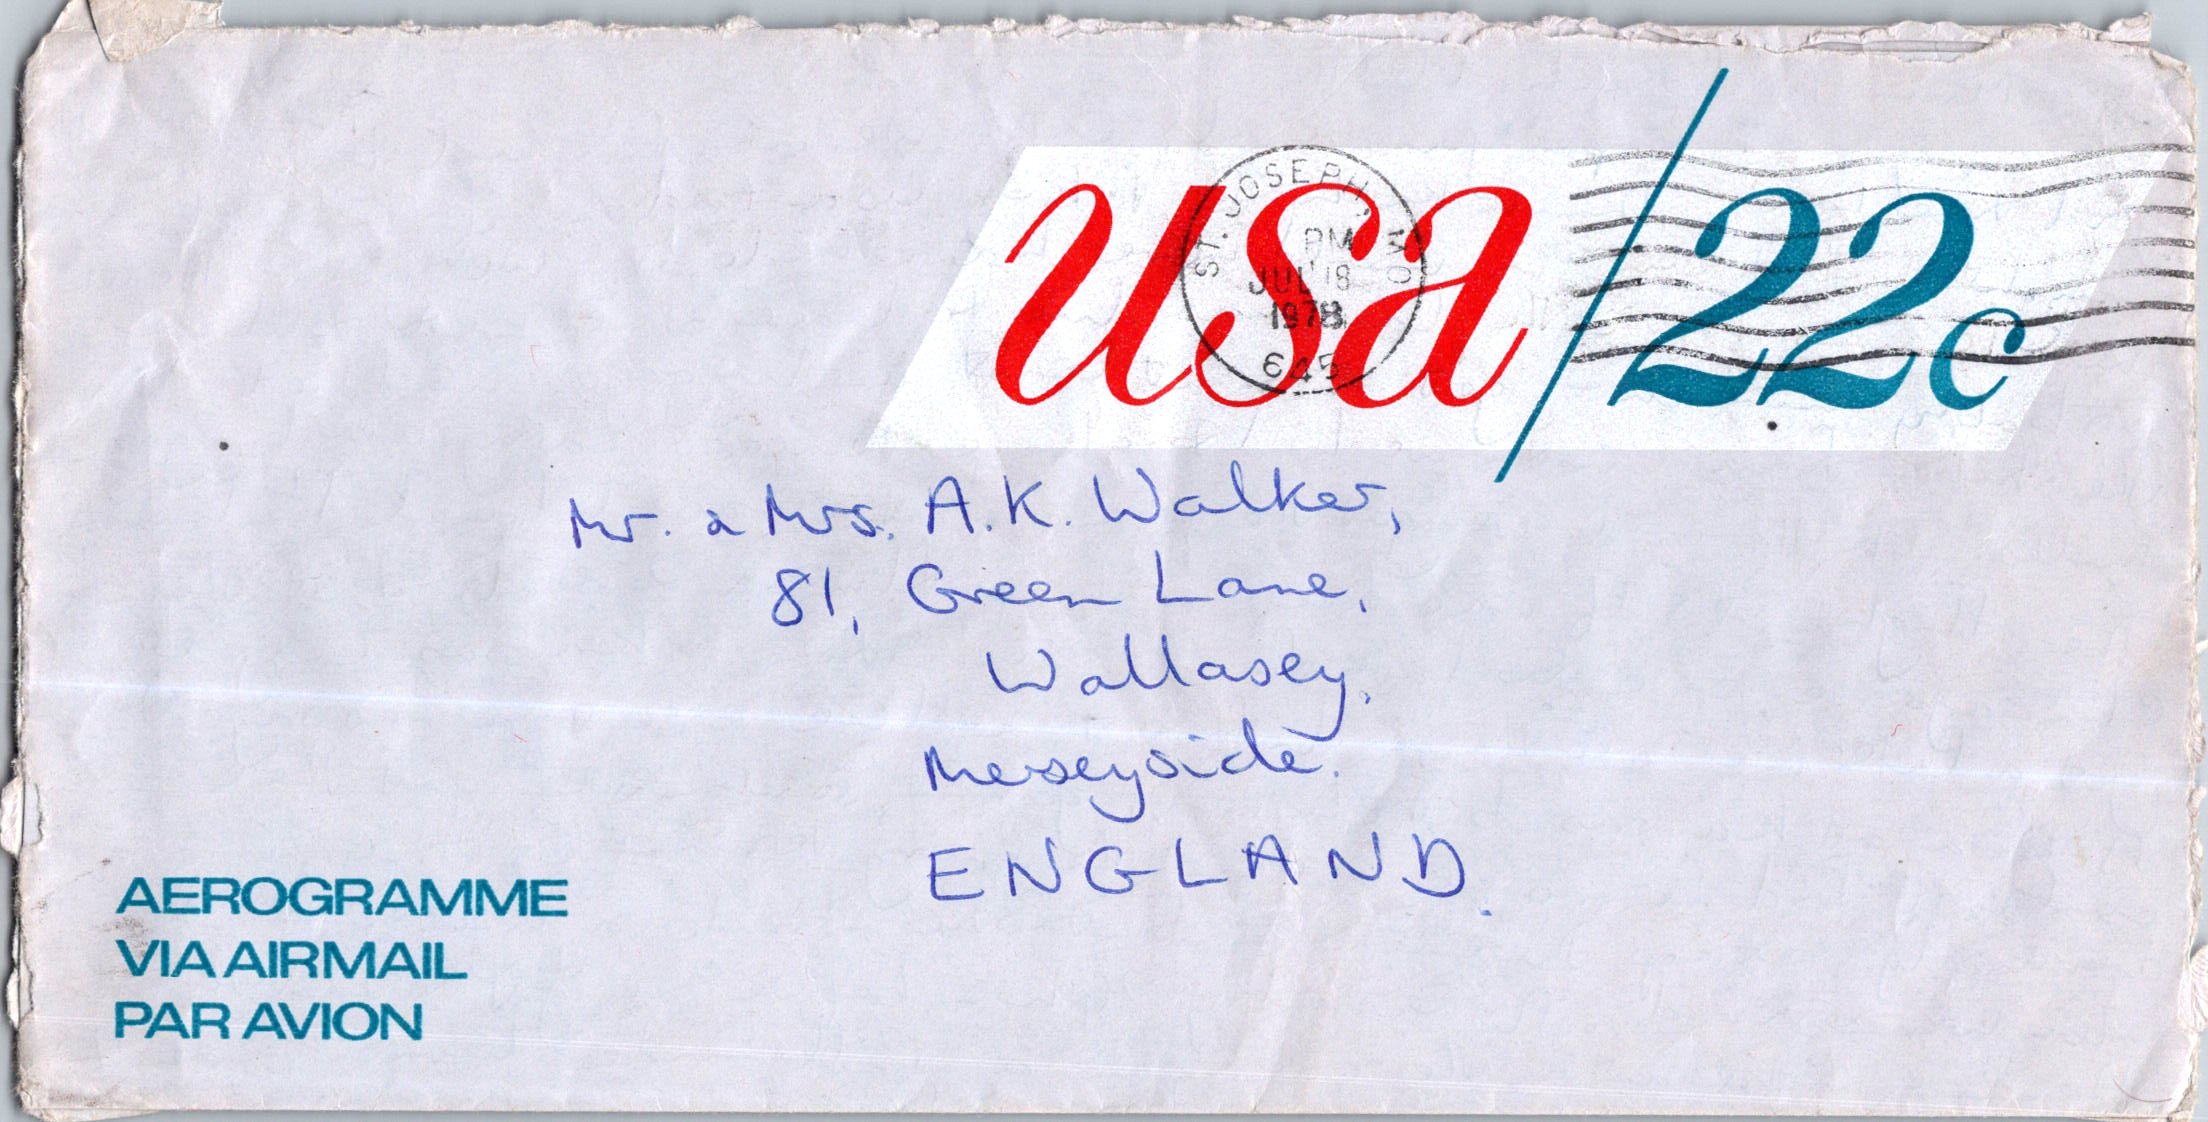 usa/22c
ST. JOSEPH, MO
PM
JUL 18
1978
645
Mr. & Mrs. A.K. Walker,
81, Green Lane,
Wallasey,
Merseyside.
ENGLAND.
AEROGRAMME
VIA AIRMAIL
PAR AVION